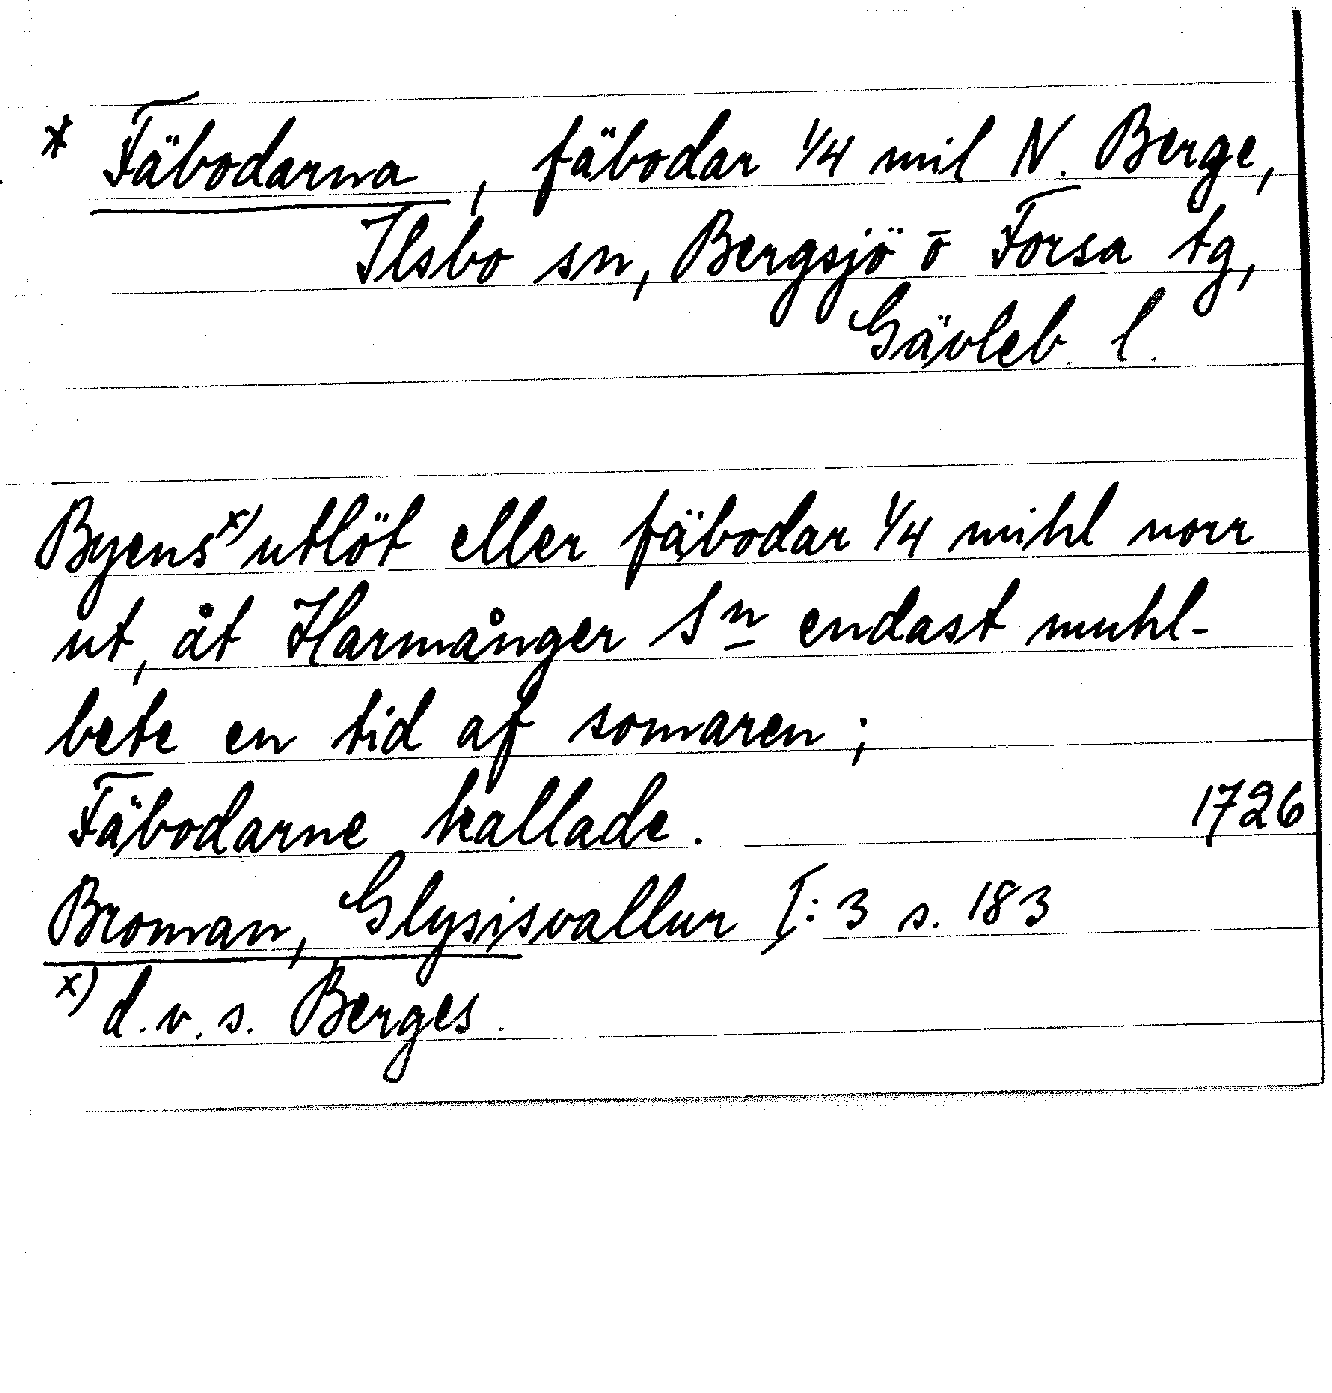 * Fäbodarna, fäbodar 1/4 mil N. Berge,
Ilsbo sn, Bergsjö ō Forsa tg,
Gävleb. l.
Byens x) utlöt eller fäbodar 1/4 mihl norr
ut, åt Harmånger Sn endast muhl-
bete en tid af somaren;
Fäbodarne kallade. 1726
Broman, Glysisvallur I:3 s. 183
x) d.v.s. Berges.